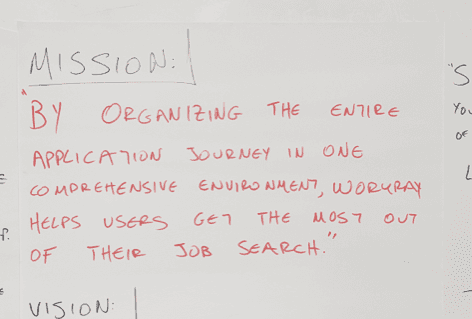 MISSION:
"BY ORGANIZING THE ENTIRE
APPLICATION JOURNEY IN ONE
COMPREHENSIVE ENVIRONMENT, WORKRAY
HELPS USERS GET THE MOST OUT
OF THEIR JOB SEARCH."
VISION:
"S
YOU
OF
L